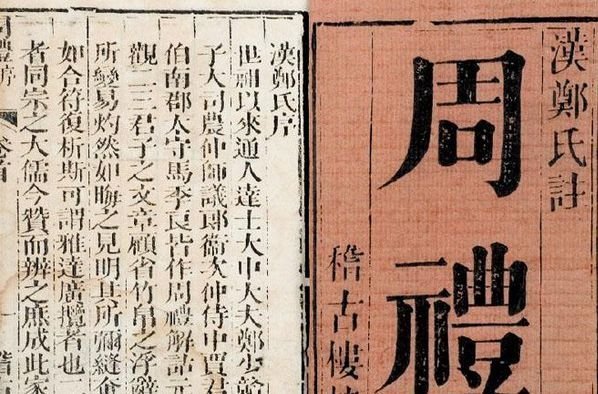 漢鄭氏註
周禮
稽古樓
漢鄭氏序
世祖以來通人達士大中大夫鄭少贛
子大司農仲師議郎衞次仲侍中賈君
伯南郡太守馬季長皆作周禮解詁元
觀二三君子之文章顧省竹帛之浮辭
所變易灼然如晦之見明其所彌縫奮
如合符復析斯可謂雅達廣攬者也二
者同宗之大儒今贊而辨之庶成此家
卷首
一
稽古